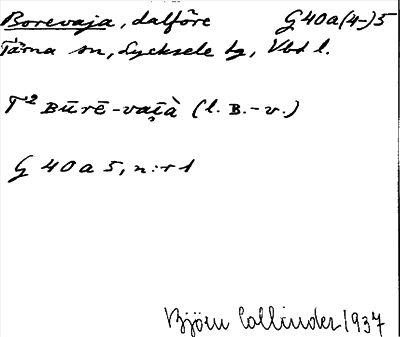 Borevaja, dalföre G 40a(4-)5
Tärna sn, Lycksele lg, Vbd l.
T² Būrē-vaţà (l. B.-v.)
G 40 a 5, n:r 1
Björn Collinder 1937